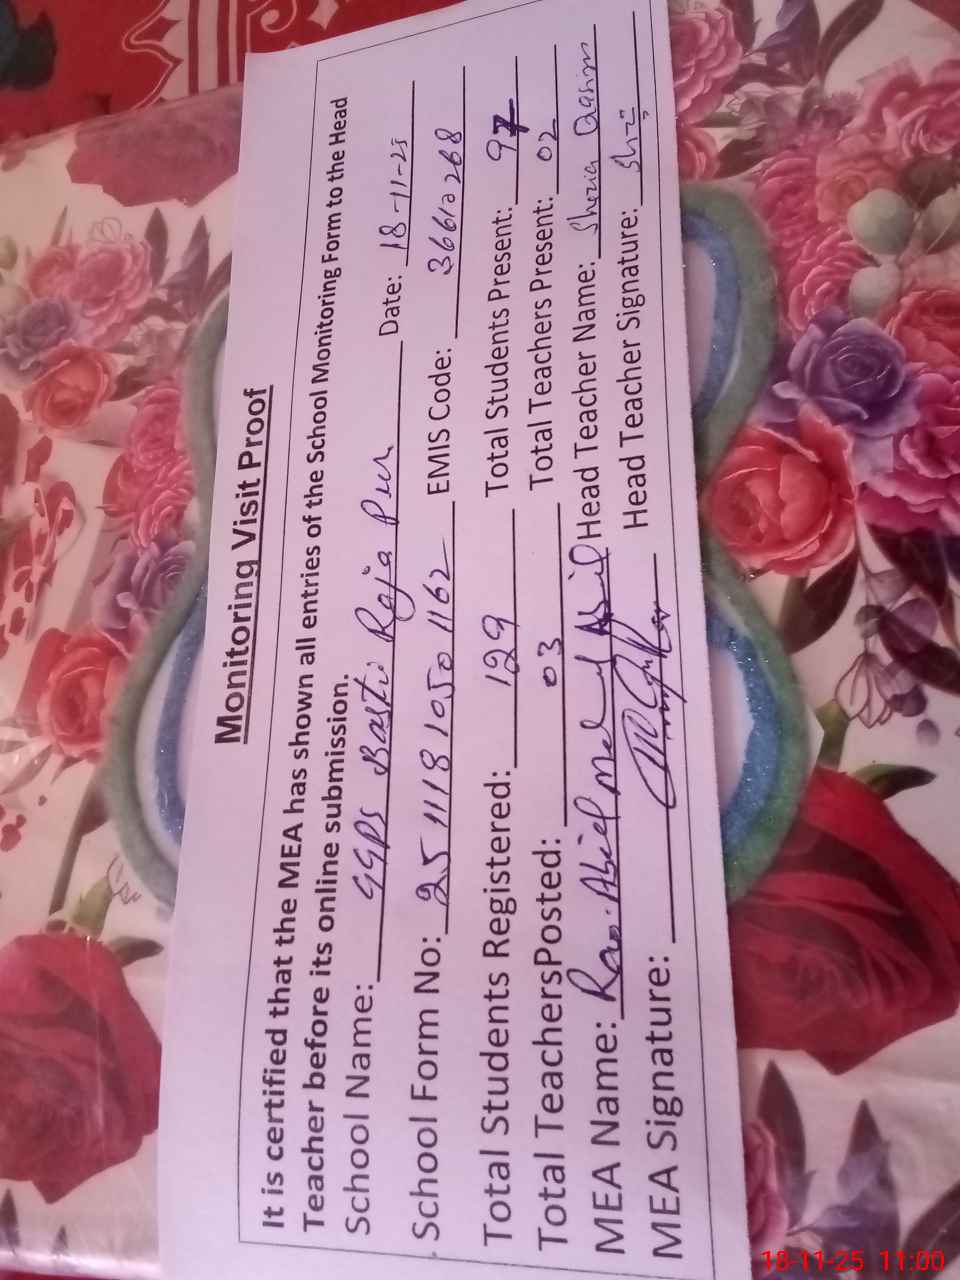 Monitoring Visit Proof
It is certified that the MEA has shown all entries of the School Monitoring Form to the Head
Teacher before its online submission.
School Name: GGPS Basti Raja Pur Date: 18-11-25
School Form No: 25111810501162 EMIS Code: 36612268
Total Students Registered: 129 Total Students Present: 97
Total TeachersPosted: 03 Total Teachers Present: 02
MEA Name: Rao. Head Teacher Name: Shezia Qasim
MEA Signature: Head Teacher Signature:
18-11-25 11:00